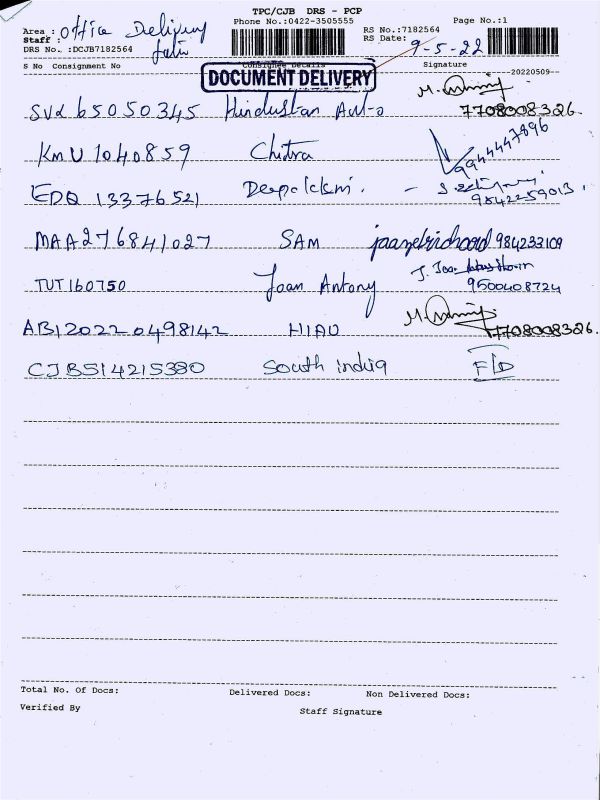 TPC/CJB DRS - PCP
Area : Office Delivery
Phone No.:0422-3505555
RS No.:7182564
Page No.:1
Staff :
RS Date: 9-5-22
DRS No. :DCJB7182564
S No Consignment No Consignee Details Signature
20220509
DOCUMENT DELIVERY
SVd 65050345 Hindustan Auto
7708008326
KMU 1040859 Chitra 9944447896
EDQ 13376521 Deepalakshmi. - 9842259013
MAA276841027 SAM 984233109
TUT160750 Joan Antony 9500408724
AB12022 0498142 HIAU 7708008326
CJB514215380 South india F/D
Total No. Of Docs: Delivered Docs: Non Delivered Docs:
Verified By Staff Signature